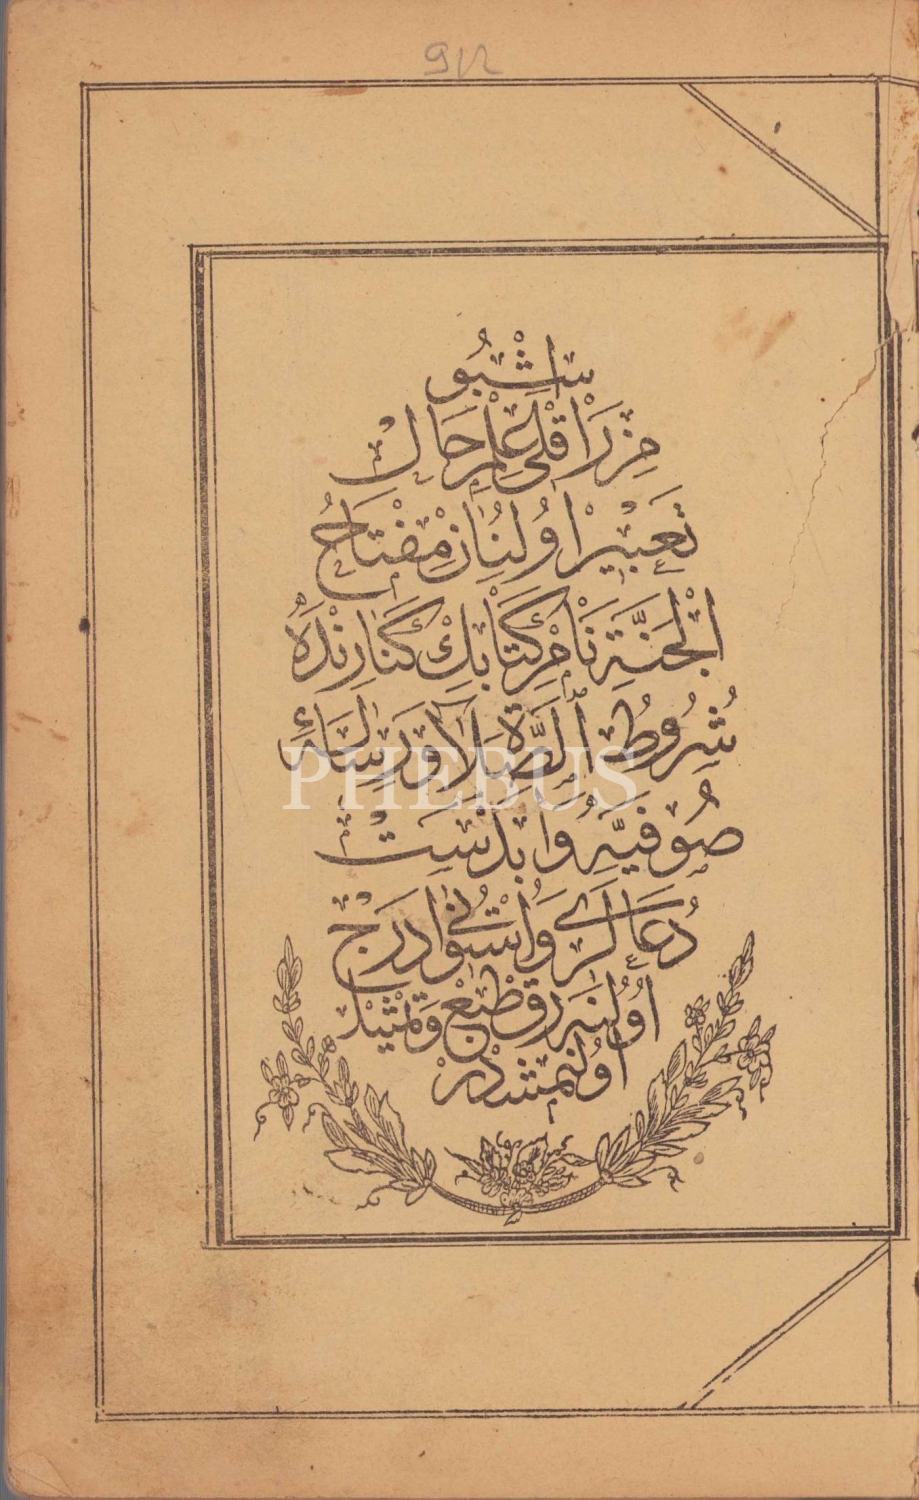 اشبو
مزراقلی علم حال
تعبیر اولنان مفتاح
الجنة نام کتابك کنارنده
شروط الصلاة و رساله
PHEBUS
صوفیه و ابدست
دعالری و استونی ادرج
اولنه رق طبع و تمثیل
اولنمشدر